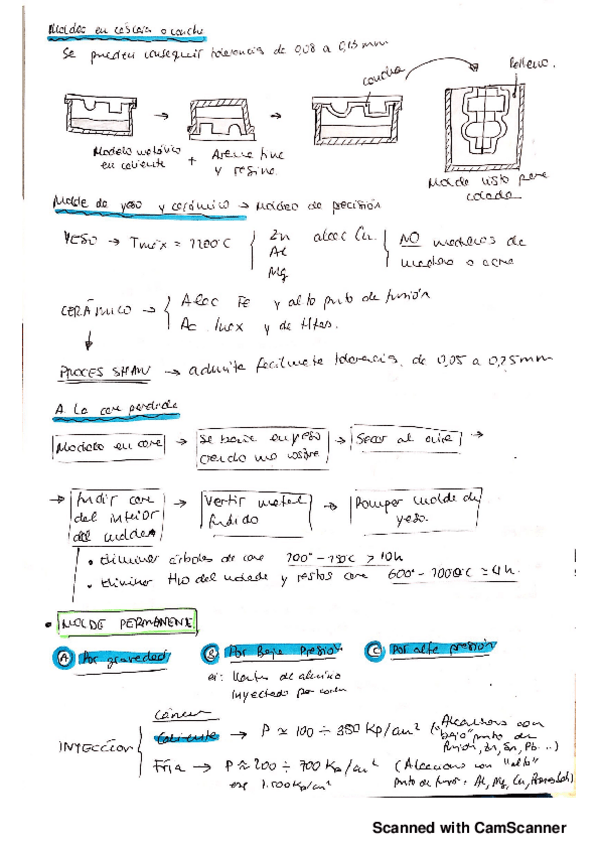 Moldeo en cáscara o concha
Se pueden conseguir tolerancias de 0,08 a 0,13 mm
concha
Relleno.
Modelo metálico
en caliente
+
Arena fina
y resina
Molde listo para
colada
Molde de yeso y cerámico → Moldeo de precisión
YESO → Tmáx = 1200°C
Zn aleac Cu.
Al
Mg
NO modelos de
madera o
CERÁMICO →
Aleac Fe y alto punto de fusión
Ac. Inox y de Htas.
PROCES SHAW → admite fácilmente tolerancias de 0,05 a 0,25mm
A la cera perdida
Modelo en cera →
Se baña en yeso
creando una
→ Secar al aire →
→ Fundir cera
del interior
del molde
→ Vertir metal
fundido
→ Romper molde de
yeso.
• Eliminar árboles de cera 100° - > 10h
• Eliminar H2O del molde y restos cera 600° - 1000°C ≈ 4h.
• MOLDE PERMANENTE
A Por gravedad
B Por Baja Presión
C Por alta presión
ej: llanta de aluminio
inyectado por
INYECCIÓN
Cámara
Caliente → P ≈ 100 ÷ 350 Kp/cm² (Aleaciones con
"bajo" punto de
fusión, Zn, Sn, Pb...)
Fría → P ≈ 200 ÷ 700 Kp/cm² (Aleaciones con "alto"
1.500 Kp/cm²
punto de fusión: Al, Mg, Cu,
Scanned with CamScanner